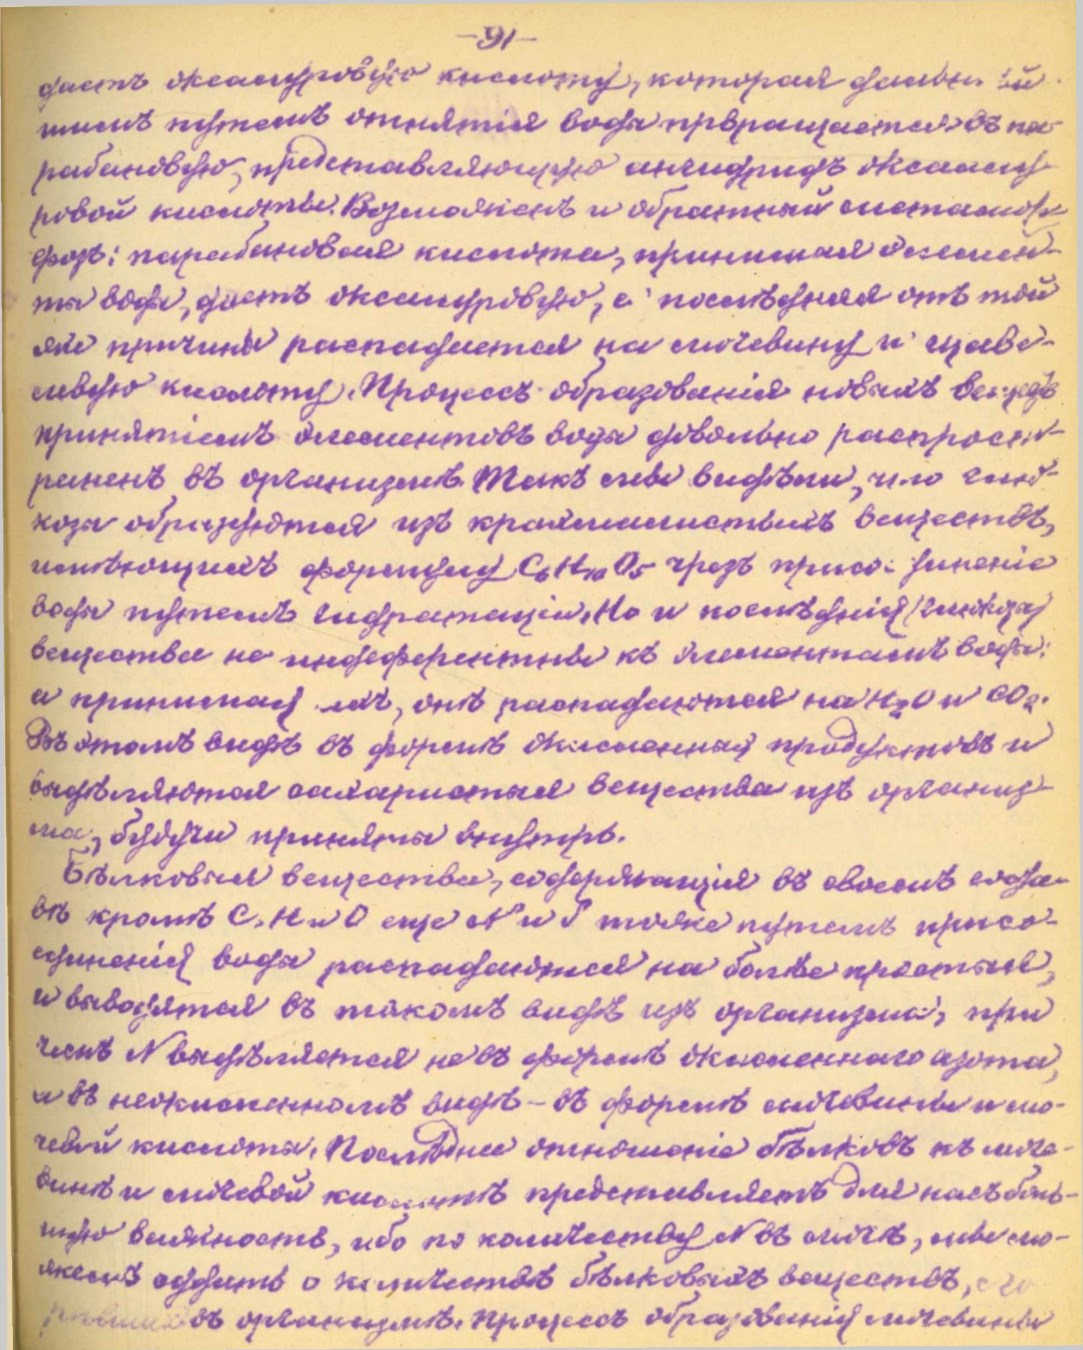 -91-
дастъ оксалуровую кислоту, которая
шимъ путемъ отнятія воды првращается въ па-
рабановую, представляющую ангидридъ оксалу-
ровой кислоты. Возможенъ и обратный метамор-
фозъ: парабановая кислота, принимая элемен-
ты воды, дастъ оксалуровую, а послѣдняя отъ той
же причины распадается на мочевину и щаве-
левую кислоту. Процессъ образованія новыхъ
принятіемъ элементовъ воды довольно распрост-
раненъ въ организмѣ. Такъ мы видѣли, что глю-
коза образуются изъ крахмалистыхъ веществъ,
имѣющихъ формулу C6H10O5 чрезъ присо- диненіе
воды путемъ гидратаціи. Но и послѣднія (глюкоза)
вещества не индеферентны къ элементамъ воды:
а принимая ихъ, онѣ распадаются на H2O и CO2.
Въ этомъ видѣ въ формѣ окисленныхъ продуктовъ и
выдѣляются сахаристыя вещества изъ организ-
ма, будучи приняты внутрь.
Бѣлковыя вещества, содержащія въ своемъ соста-
вѣ кромѣ C, H и O еще N и S тоже путемъ присо-
единенія воды распадаются на болѣе простыя,
и выводятся въ такомъ видѣ изъ организма, при
чемъ N выдѣляется не въ формѣ окисленнаго азота,
а въ неокисленномъ видѣ – въ формѣ мочевины и мо-
чевой кислоты. Послѣднее отношеніе бѣлковъ къ моче-
винѣ и мочевой кислотѣ представляетъ для насъ боль-
шую важность, ибо по количеству N въ мочѣ, мы мо-
жемъ судить о количествѣ бѣлковыхъ веществъ,
въ организмѣ. Процессъ образованія мочевины